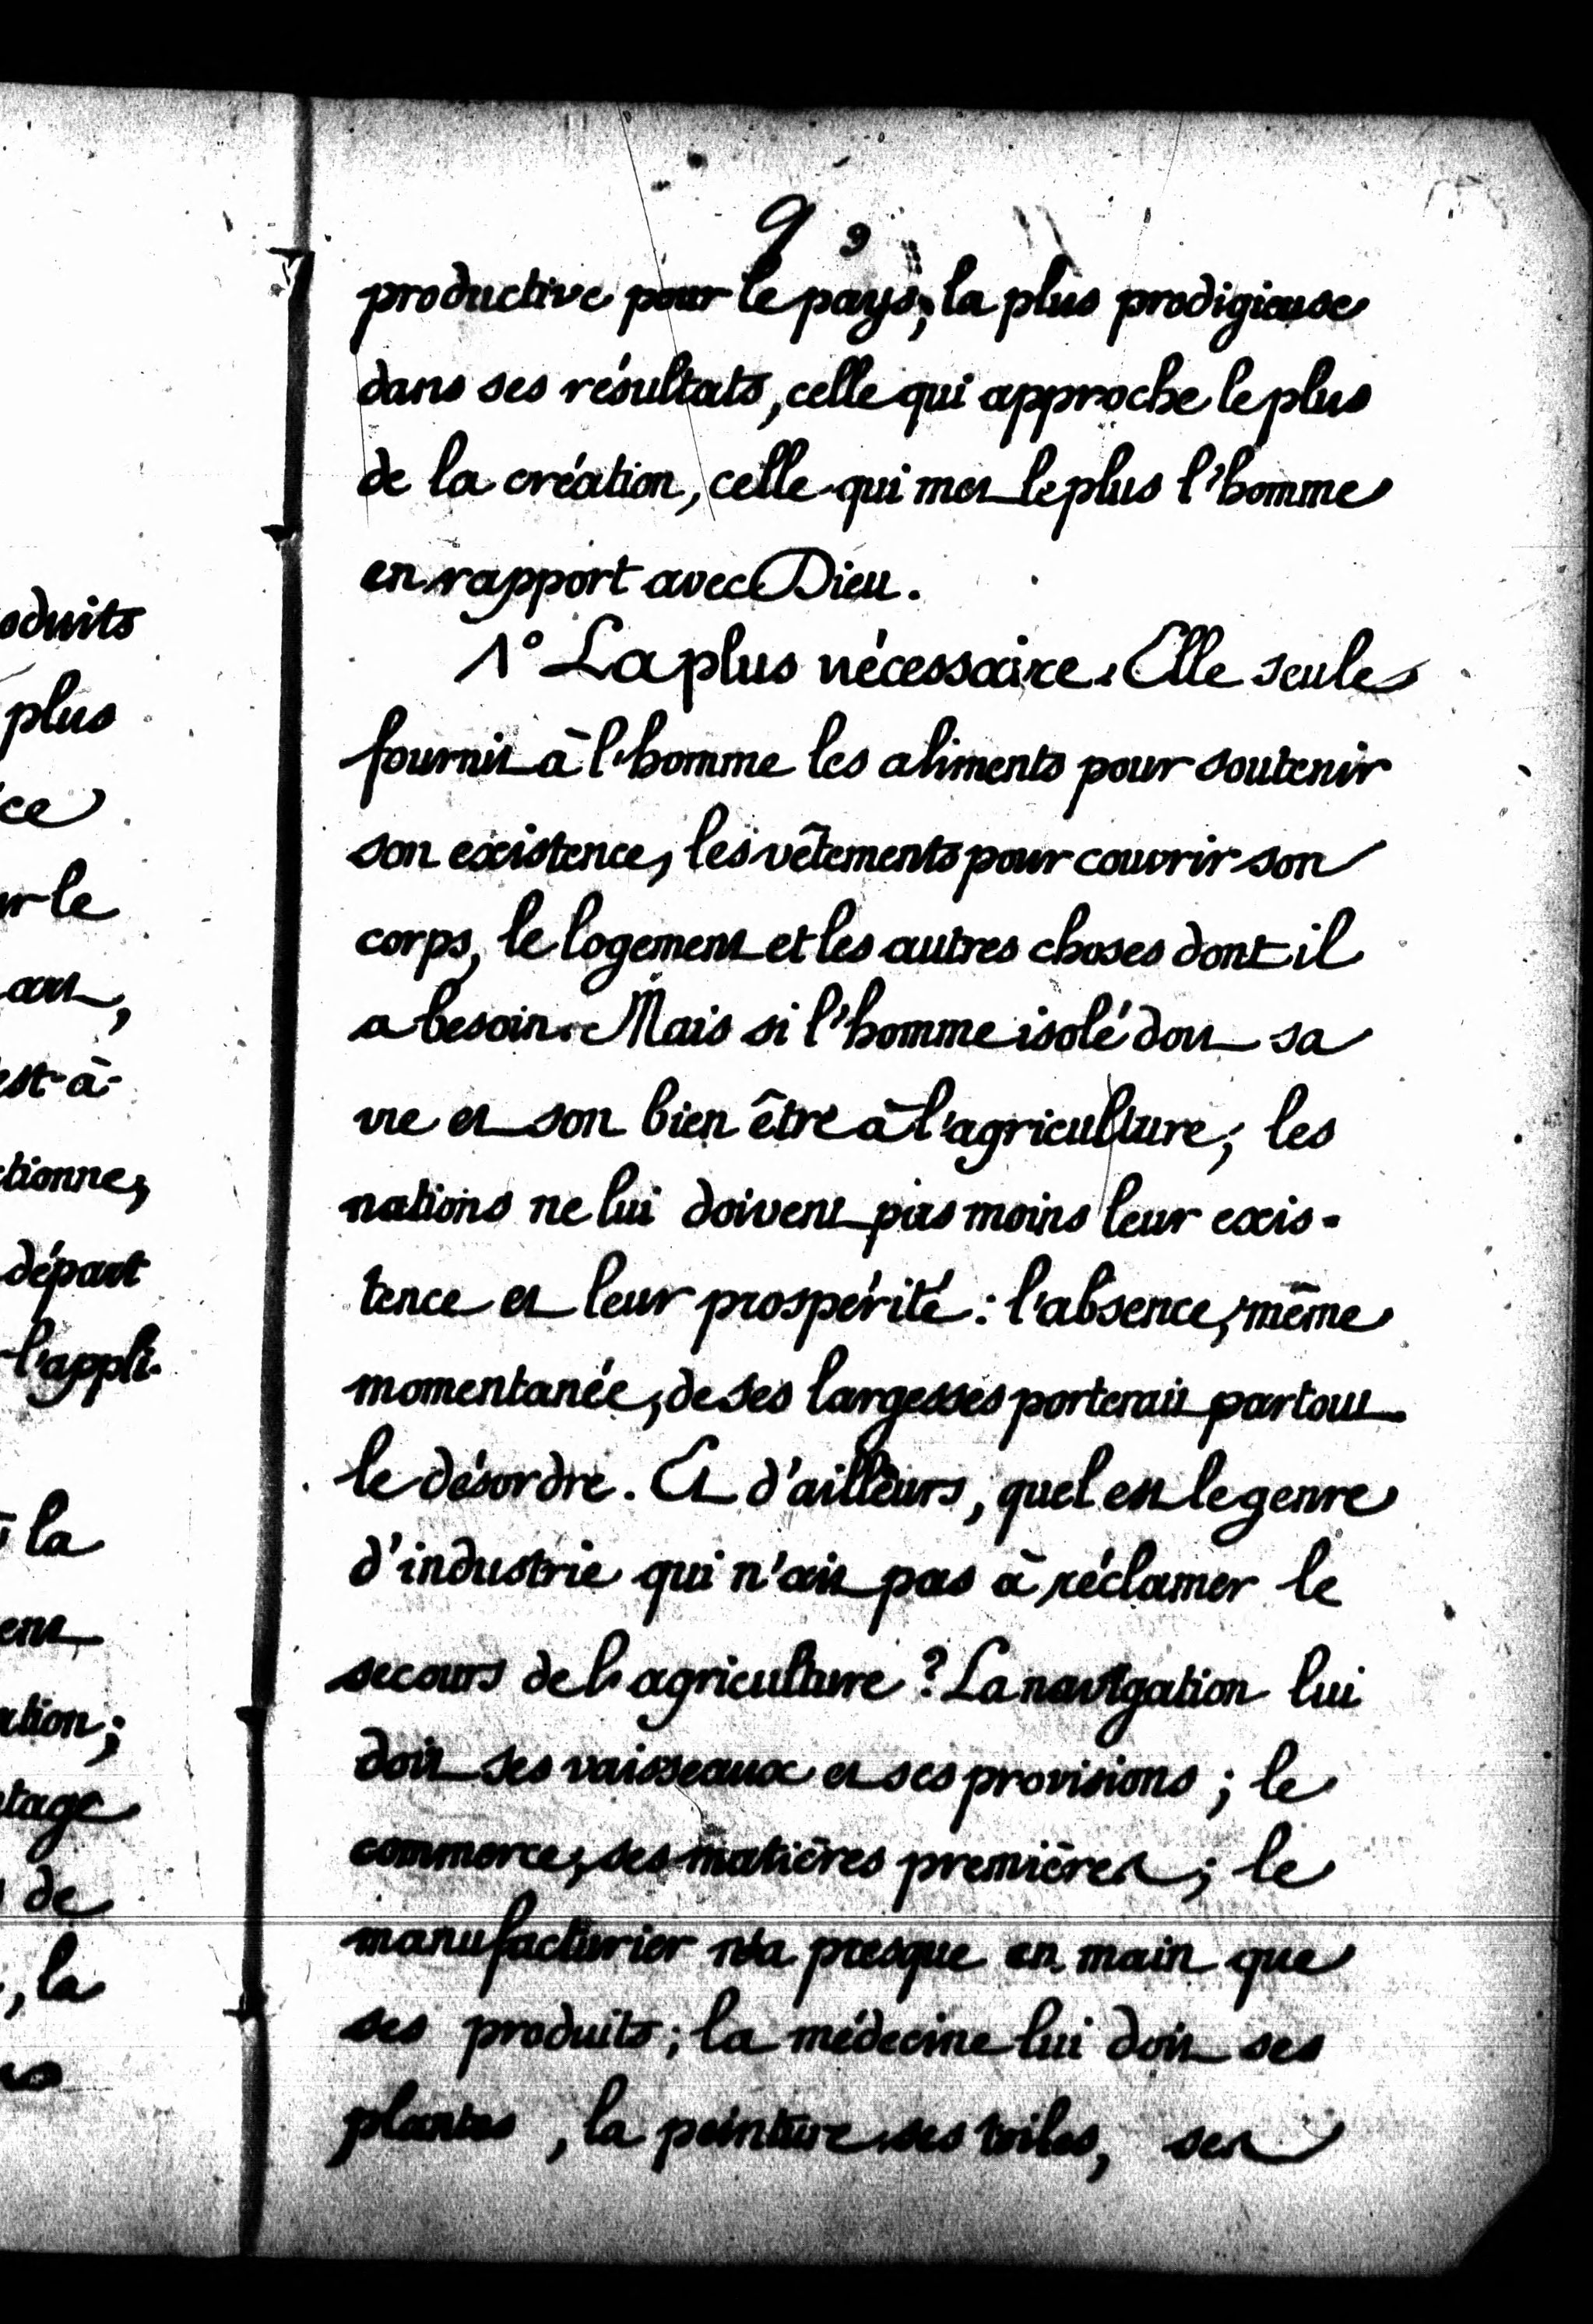 oduits
plus
ce
ur le
art,
est-à-
ctionne,
départ
l'appli-
à la
ent
ation;
tage
de
, la
9 9
productive pour le pays; la plus prodigieuse
dans ses résultats, celle qui approche le plus
de la création, celle qui met le plus l'homme
en rapport avec Dieu.
1° La plus nécessaire. Elle seule
fournit à l'homme les aliments pour soutenir
son existence, les vêtements pour couvrir son
corps, le logement et les autres choses dont il
a besoin. Mais si l'homme isolé doit sa
vie et son bien être à l'agriculture, les
nations ne lui doivent pas moins leur exis-
tence et leur prospérité: l'absence, même
momentanée, de ses largesses porterait partout
le désordre. Et d'ailleurs, quel est le genre
d'industrie qui n'ait pas à réclamer le
secours de l'agriculture? La navigation lui
doit ses vaisseaux et ses provisions; le
commerce, ses matières premières; le
manufacturier n'a presque en main que
ses produits; la médecine lui doit ses
plantes, la peinture ses toiles, ses